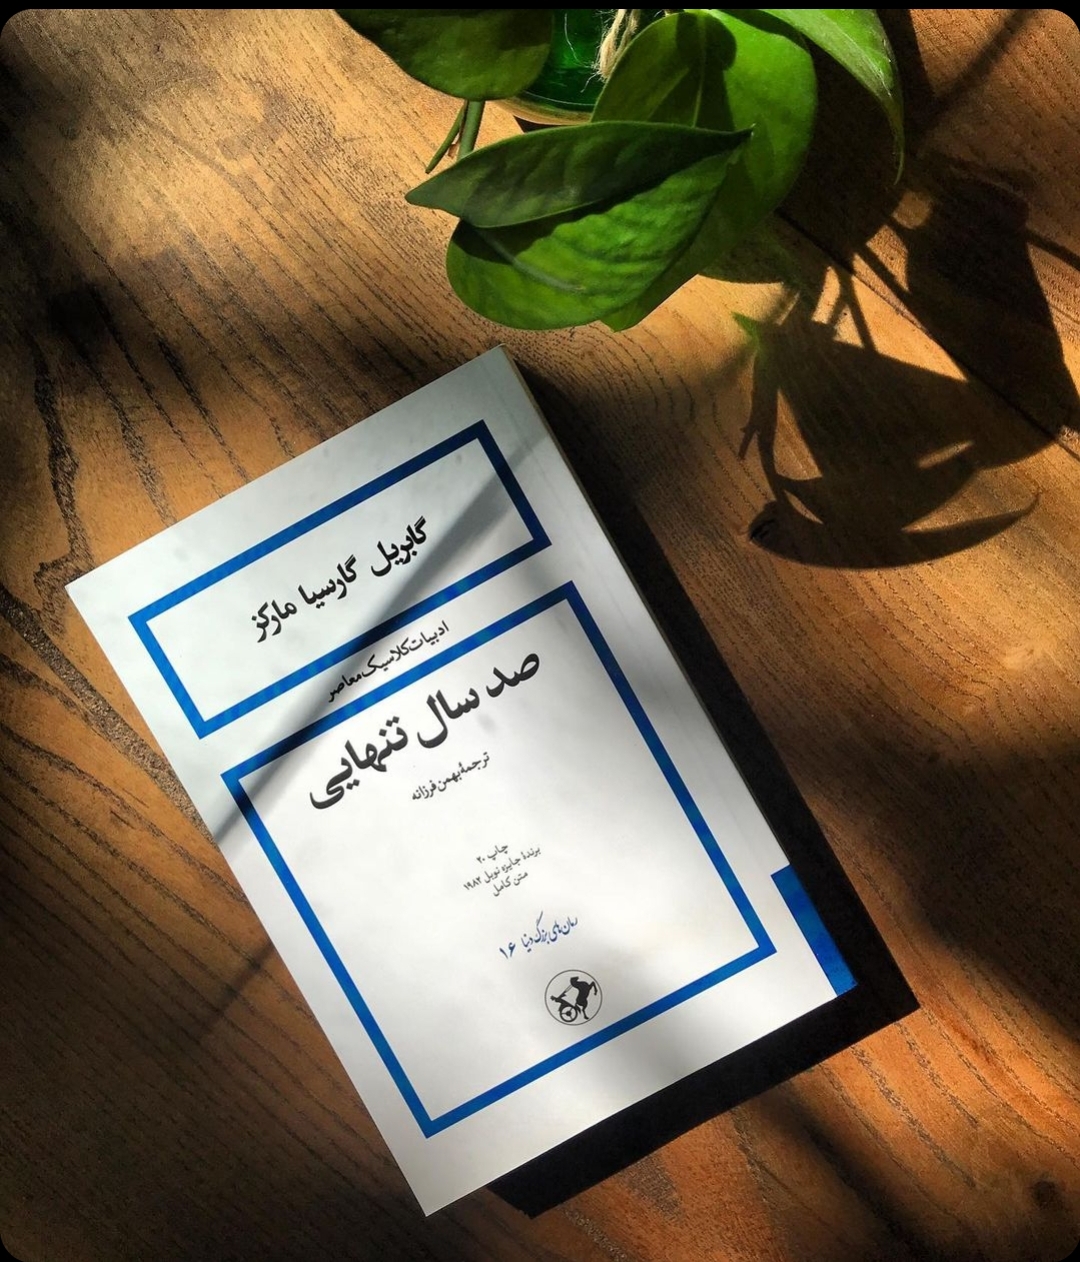 گابریل گارسیا مارکز
ادبیات کلاسیک معاصر
صد سال تنهایی
ترجمهٔ بهمن فرزانه
چاپ ۲۰
برندهٔ جایزه نوبل ۱۹۸۲
متن کامل
رمان‌های بزرگ دنیا ۱۶